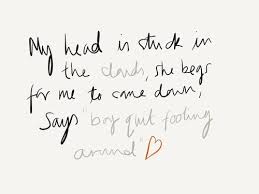 My head is stuck in
the clouds, she begs
for me to come down,
Says "boy quit fooling
around"